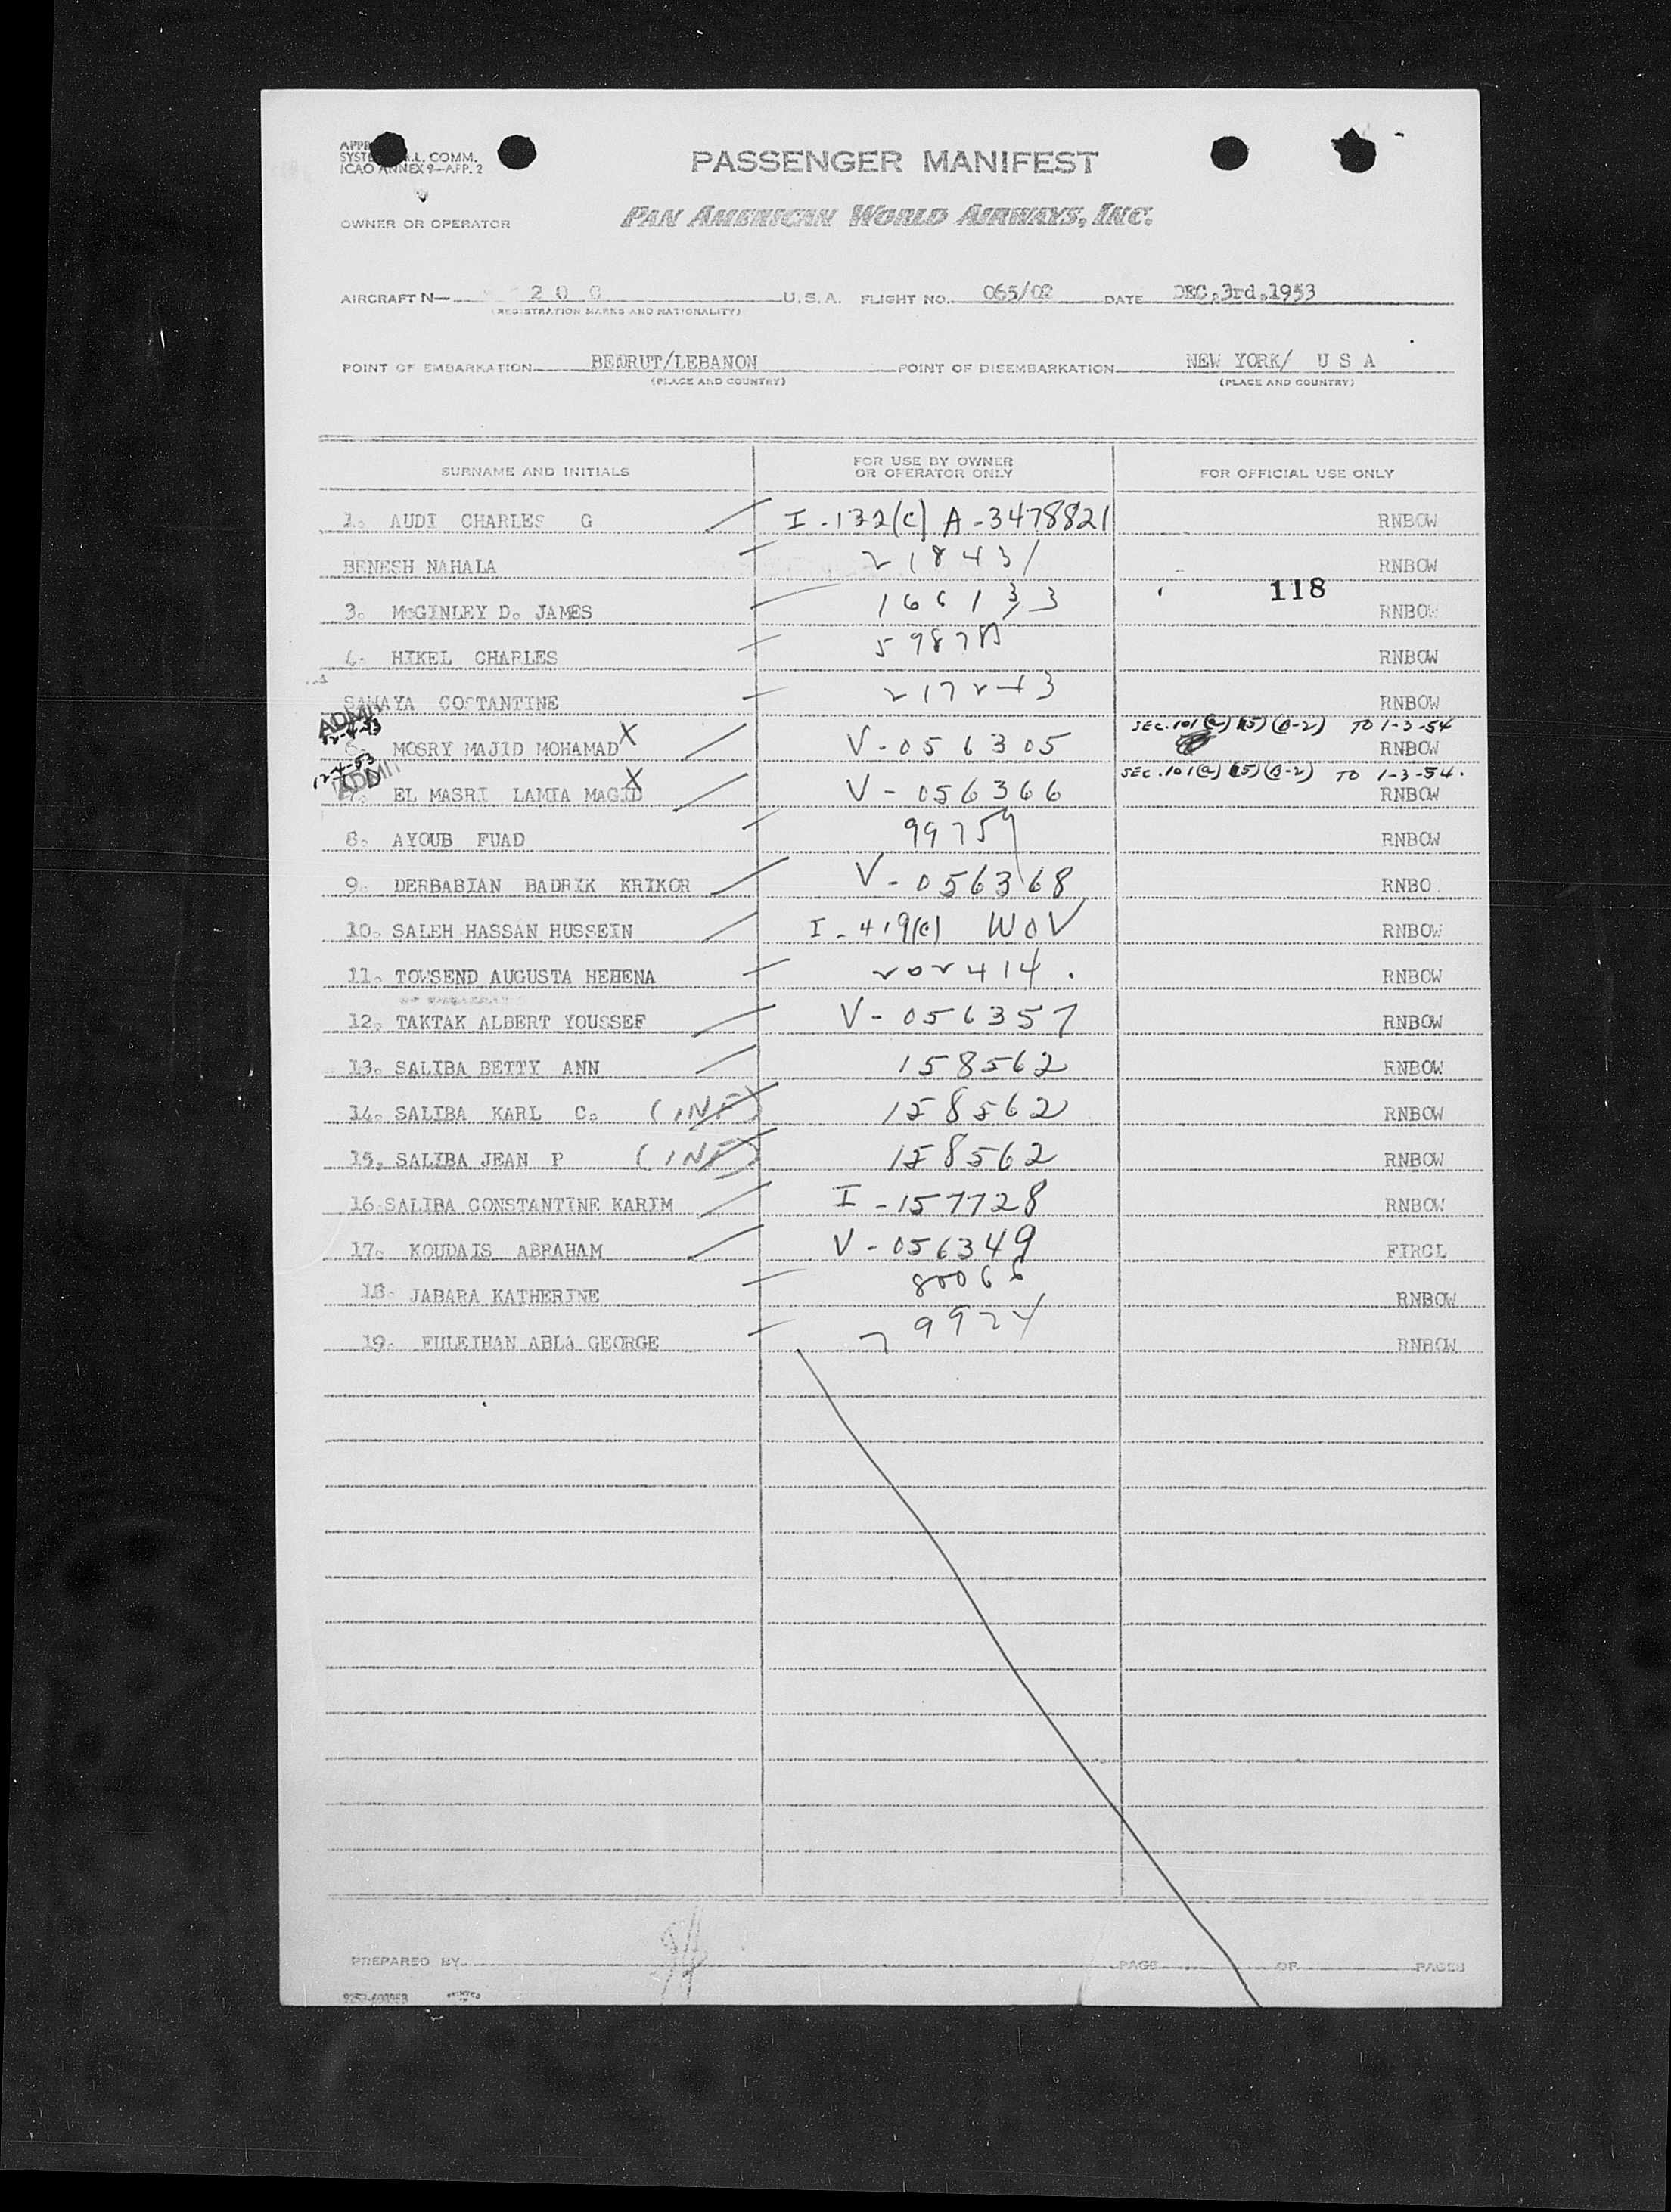 SYSTE R.L. COMM.
ICAO ANNEX 9—APP. 2
PASSENGER MANIFEST
OWNER OR OPERATOR
PAN AMERICAN WORLD AIRWAYS, INC.
AIRCRAFT N— 2 0 0 U.S.A. FLIGHT NO. 065/02 DATE DEC.3rd.1953
(REGISTRATION MARKS AND NATIONALITY)
POINT OF EMBARKATION BEIRUT/LEBANON POINT OF DISEMBARKATION NEW YORK/ U S A
(PLACE AND COUNTRY) (PLACE AND COUNTRY)
SURNAME AND INITIALS FOR USE BY OWNER OR OPERATOR ONLY FOR OFFICIAL USE ONLY
1. AUDI CHARLES G I-132(C) A-3478821 RNBOW
BENESH NAHALA 218431 RNBOW
118
3. McGINLEY D. JAMES 166133 RNBOW
4. HIKEL CHARLES RNBOW
SAWAYA COSTANTINE RNBOW
ADMIT 12-4-53 SEC.101(a)(15)(B-2) TO 1-3-54
6. MOSRY MAJID MOHAMAD X V-056305 RNBOW
12-4-53 ADMIT SEC.101(a)(15)(B-2) TO 1-3-54.
7. EL MASRI LAMIA MAGID X V-056366 RNBOW
8. AYOUB FUAD 99759 RNBOW
9. DERBABIAN BADRIK KRIKOR V-056368 RNBO
10. SALEH HASSAN HUSSEIN I-419(c) WOV RNBOW
11. TOWSEND AUGUSTA HEHENA 202414. RNBOW
12. TAKTAK ALBERT YOUSSEF V-056357 RNBOW
13. SALIBA BETTY ANN 158562 RNBOW
14. SALIBA KARL C. (INF) 158562 RNBOW
15. SALIBA JEAN P (INF) 158562 RNBOW
16.SALIBA CONSTANTINE KARIM I-157728 RNBOW
17. KOUDAIS ABRAHAM V-056349 FIRCL
18. JABARA KATHERINE 80066 RNBOW
19. FULEIHAN ABLA GEORGE RNBOW
PREPARED BY PAGE OF PAGES
PRINTED